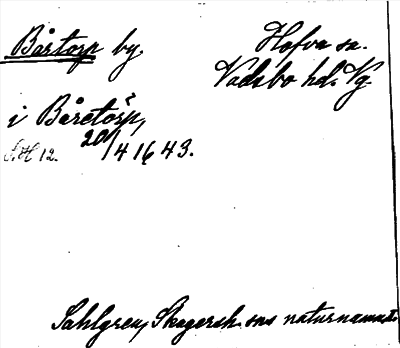 Bårtorp by.
Hofva sn.
Vadsbo hd. Vg
i Båretorp,
S.H 12. 20/4 1643.
Sahlgren, Skagersh. sns naturnamn.